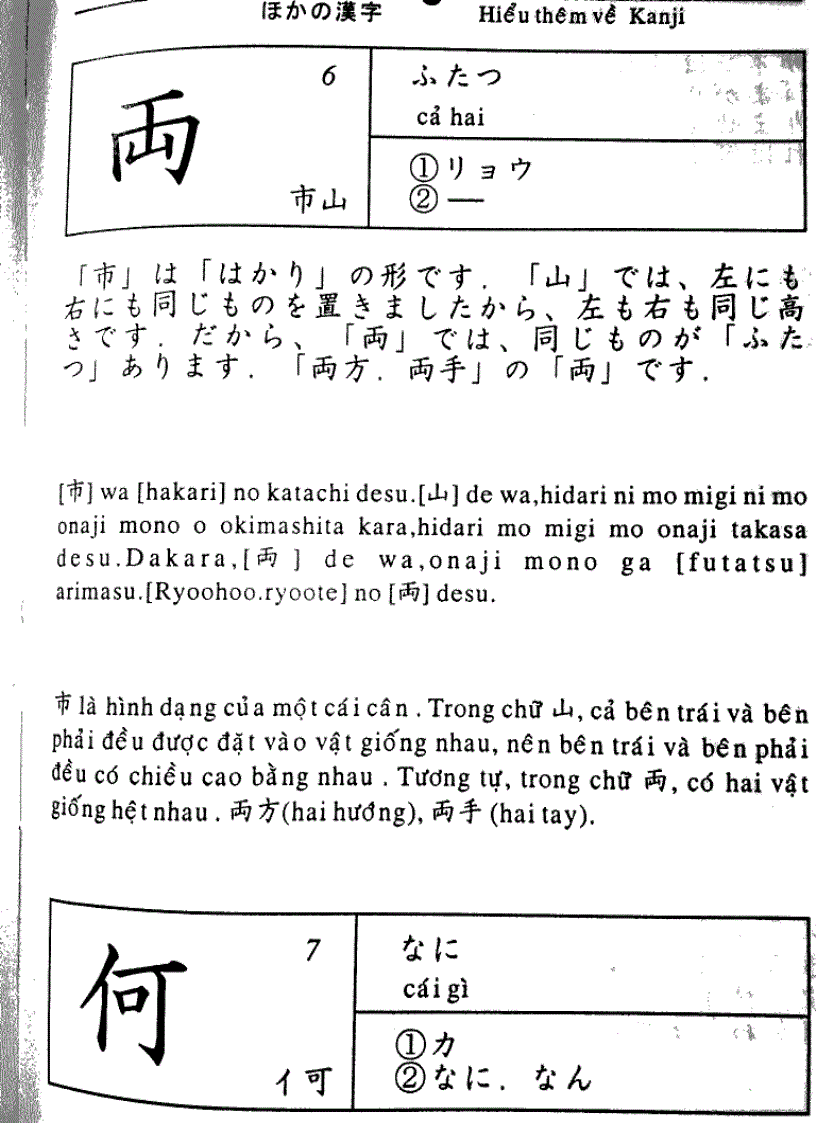 ほかの漢字
Hiểu thêm về Kanji
両
6
市山
ふたつ
cả hai
①リョウ
②―
「市」は「はかり」の形です．「山」では、左にも
右にも同じものを置きましたから、左も右も同じ高
さです．だから、「両」では、同じものが「ふた
つ」あります．「両方．両手」の「両」です．
[市] wa [hakari] no katachi desu.[山] de wa,hidari ni mo migi ni mo
onaji mono o okimashita kara,hidari mo migi mo onaji takasa
desu.Dakara,[両] de wa,onaji mono ga [futatsu]
arimasu.[Ryoohoo.ryoote] no [両] desu.
市 là hình dạng của một cái cân . Trong chữ 山, cả bên trái và bên
phải đều được đặt vào vật giống nhau, nên bên trái và bên phải
đều có chiều cao bằng nhau . Tương tự, trong chữ 両, có hai vật
giống hệt nhau . 両方(hai hướng), 両手 (hai tay).
何
7
イ可
なに
cái gì
①カ
②なに．なん